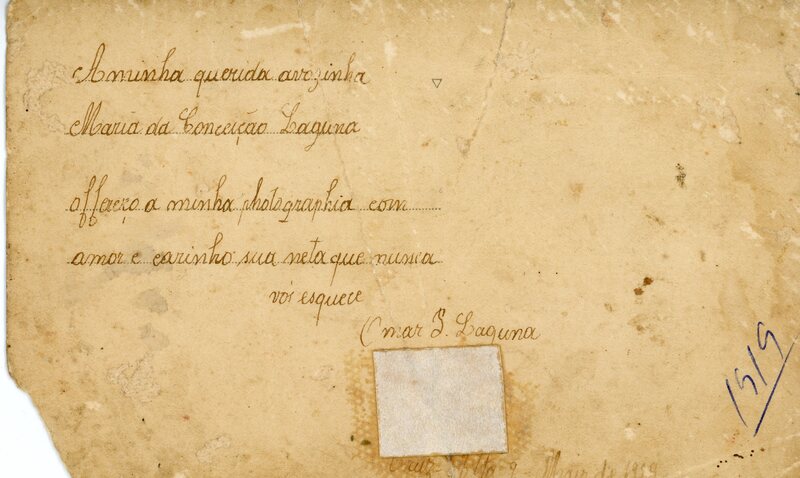 A minha querida avozinha
Maria da Conceição Laguna
offereço a minha photographia com
amor e carinho sua neta que nunca
vos esquece
Omar S. Laguna
1919
Maio de 1919